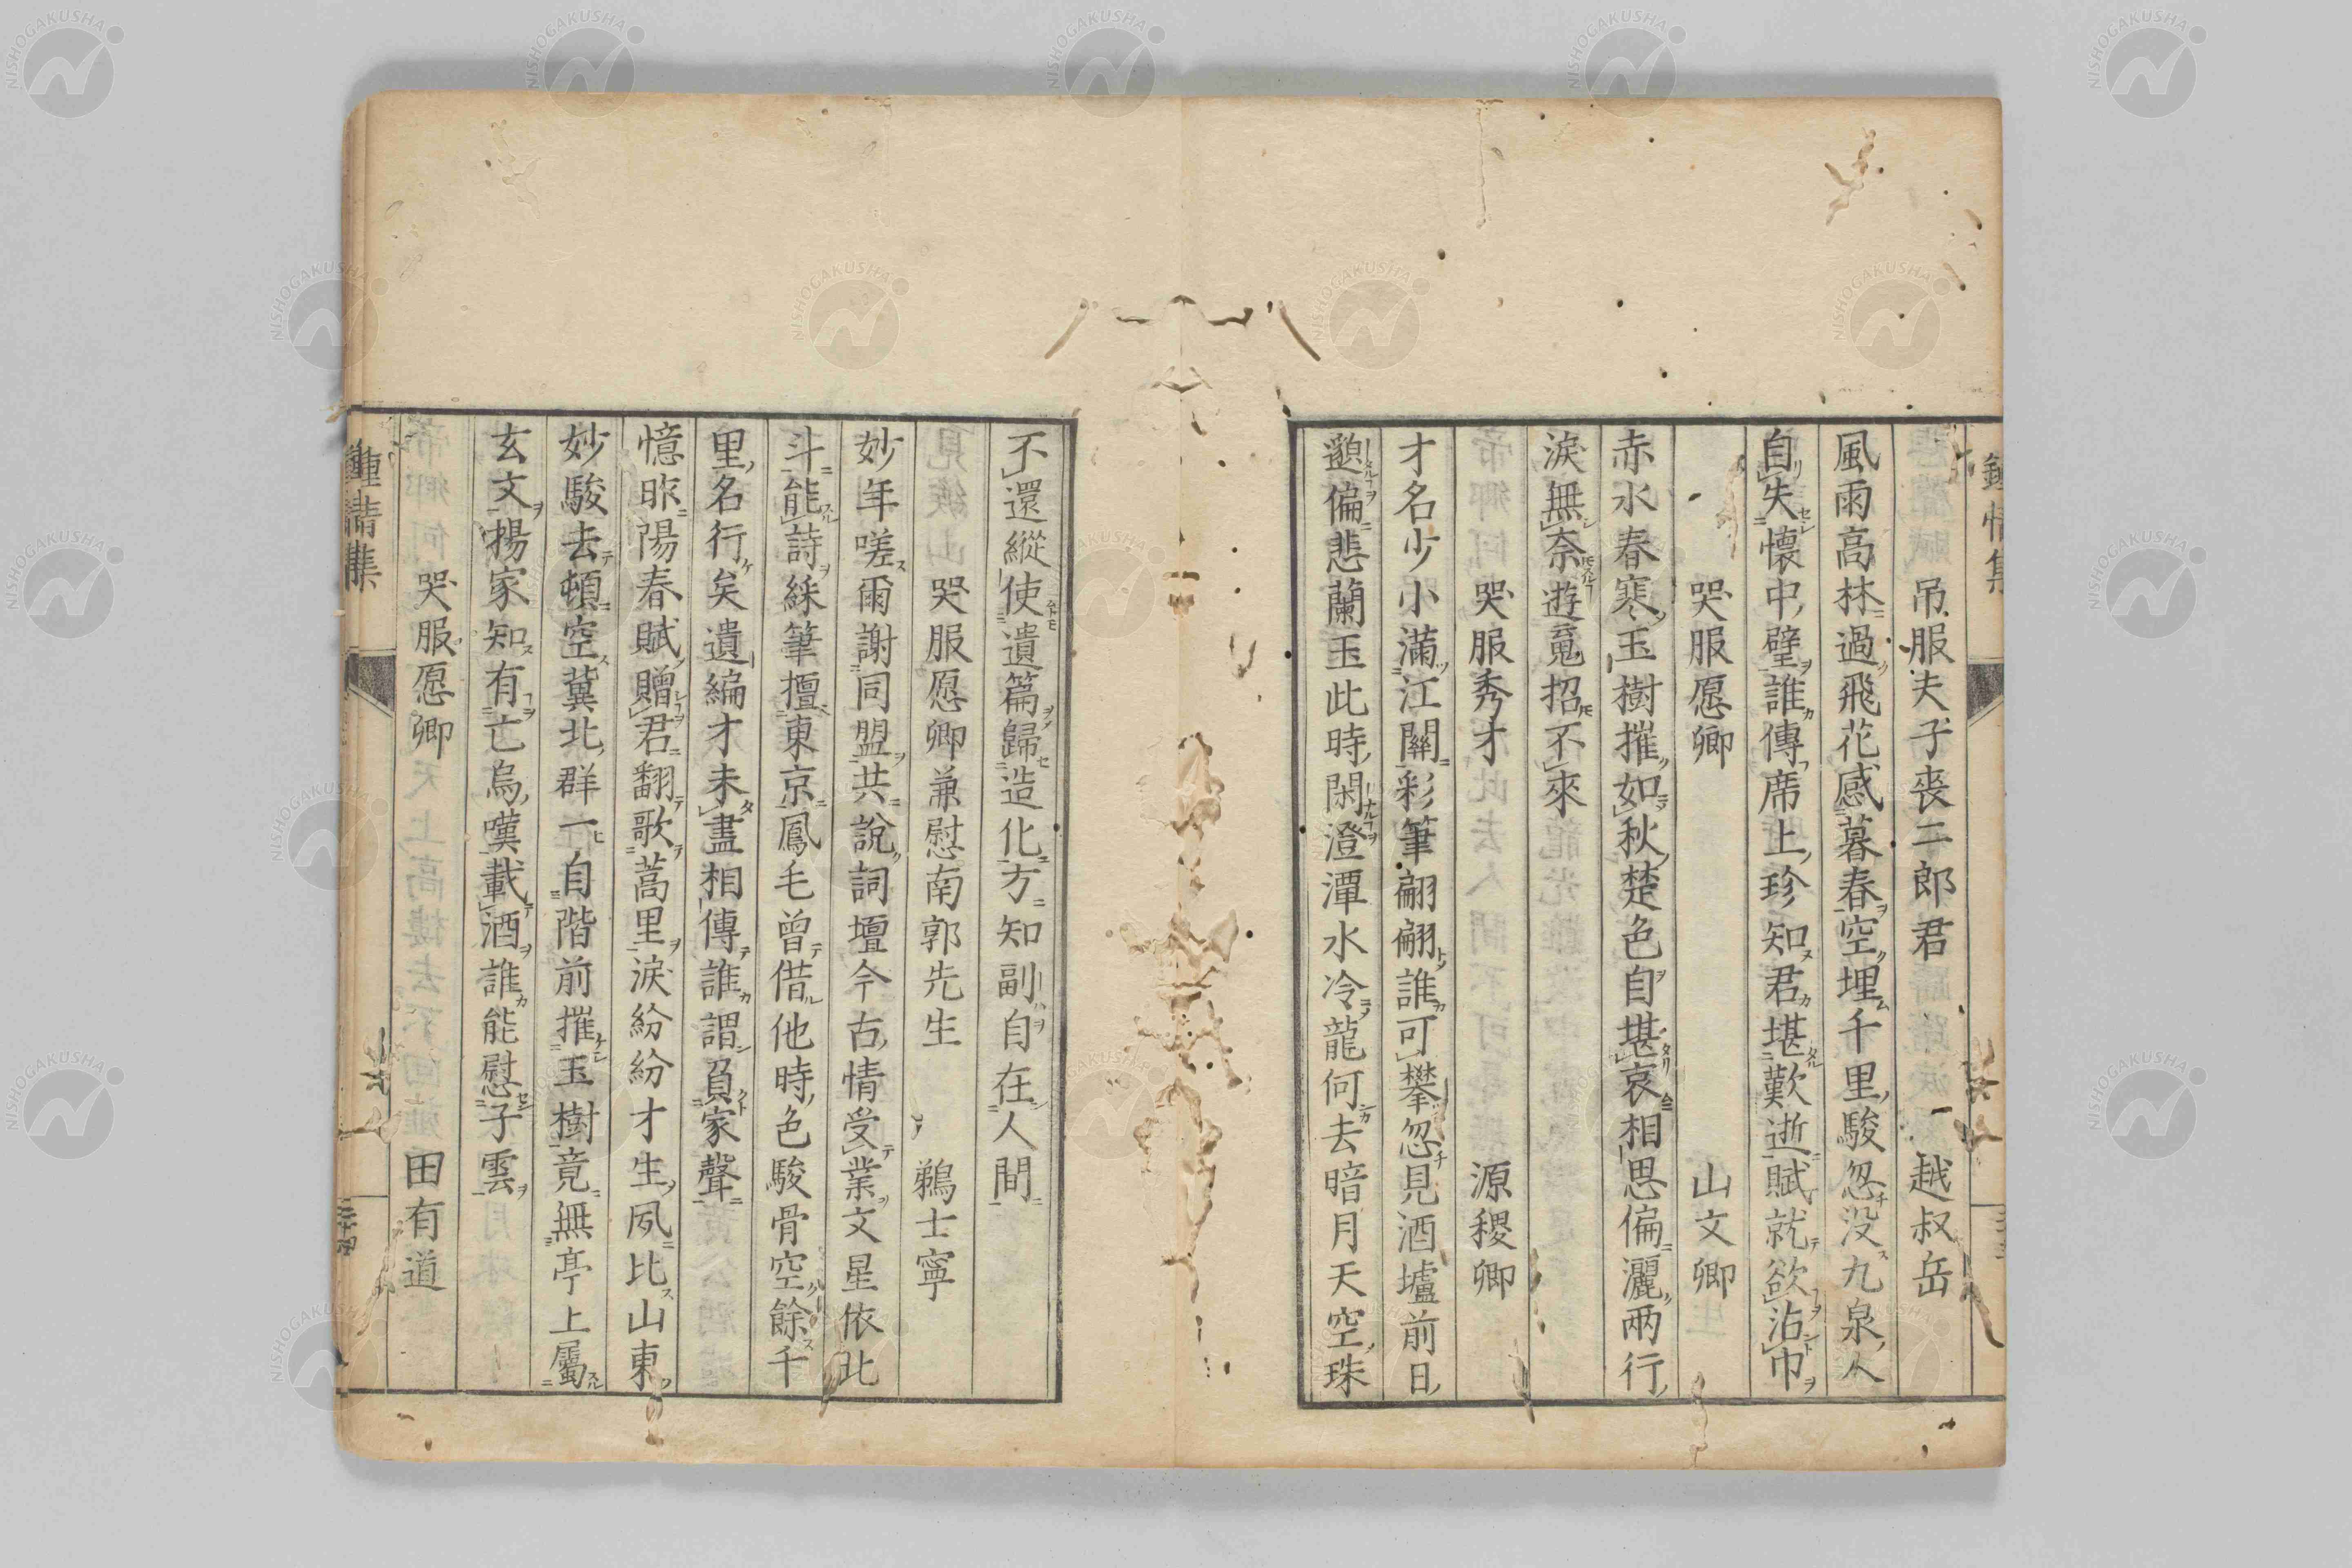 吊服夫子喪二郎君　越叔岳
風雨高林過飛花感暮春空埋千里駿忽没九泉人
自失懷中璧誰傳席上珍知君堪歎逝賦就欲沾巾
哭服愿卿　山文卿
赤水春寒玉樹摧如秋楚色自堪哀相思偏灑兩行
淚無奈遊䰟招不來
哭服秀才　源稷卿
才名少小滿江關彩筆翩翩誰可攀忽見酒壚前日
邈偏悲蘭玉此時閑澄潭水冷龍何去暗月天空珠
不還縱使遺篇歸造化方知副自在人間
哭服愿卿兼慰南郭先生　鵜士寧
妙年嗟爾謝同盟共說詞壇今古情受業文星依北
斗能詩綵筆擅東京鳳毛曾借他時色駿骨空餘千
里名行矣遺編才未盡相傳誰謂負家聲
憶昨陽春賦贈君翻歌蒿里淚紛紛才生夙比山東
妙駿去頓空冀北群一自階前摧玉樹竟無亭上屬
玄文揚家知有亡烏嘆載酒誰能慰子雲
哭服愿卿　田有道
鍾情集
三十四